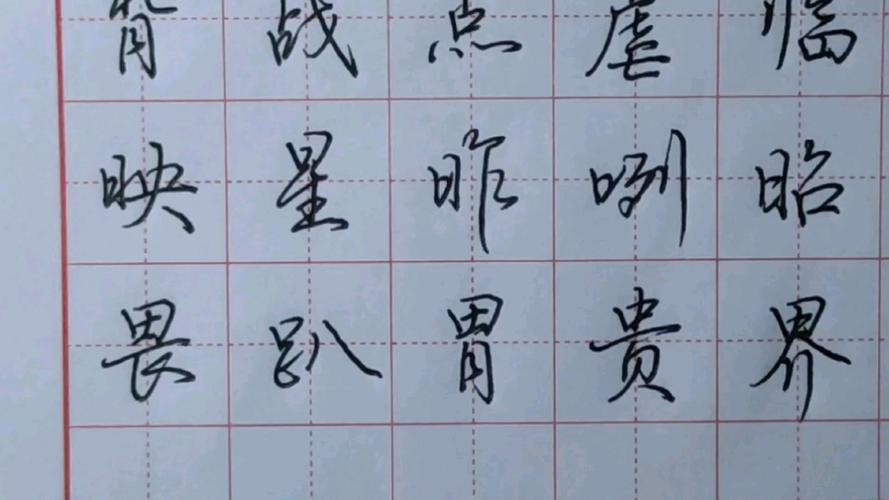 背战点虐临
映星昨咧昭
畏趴胃贵界